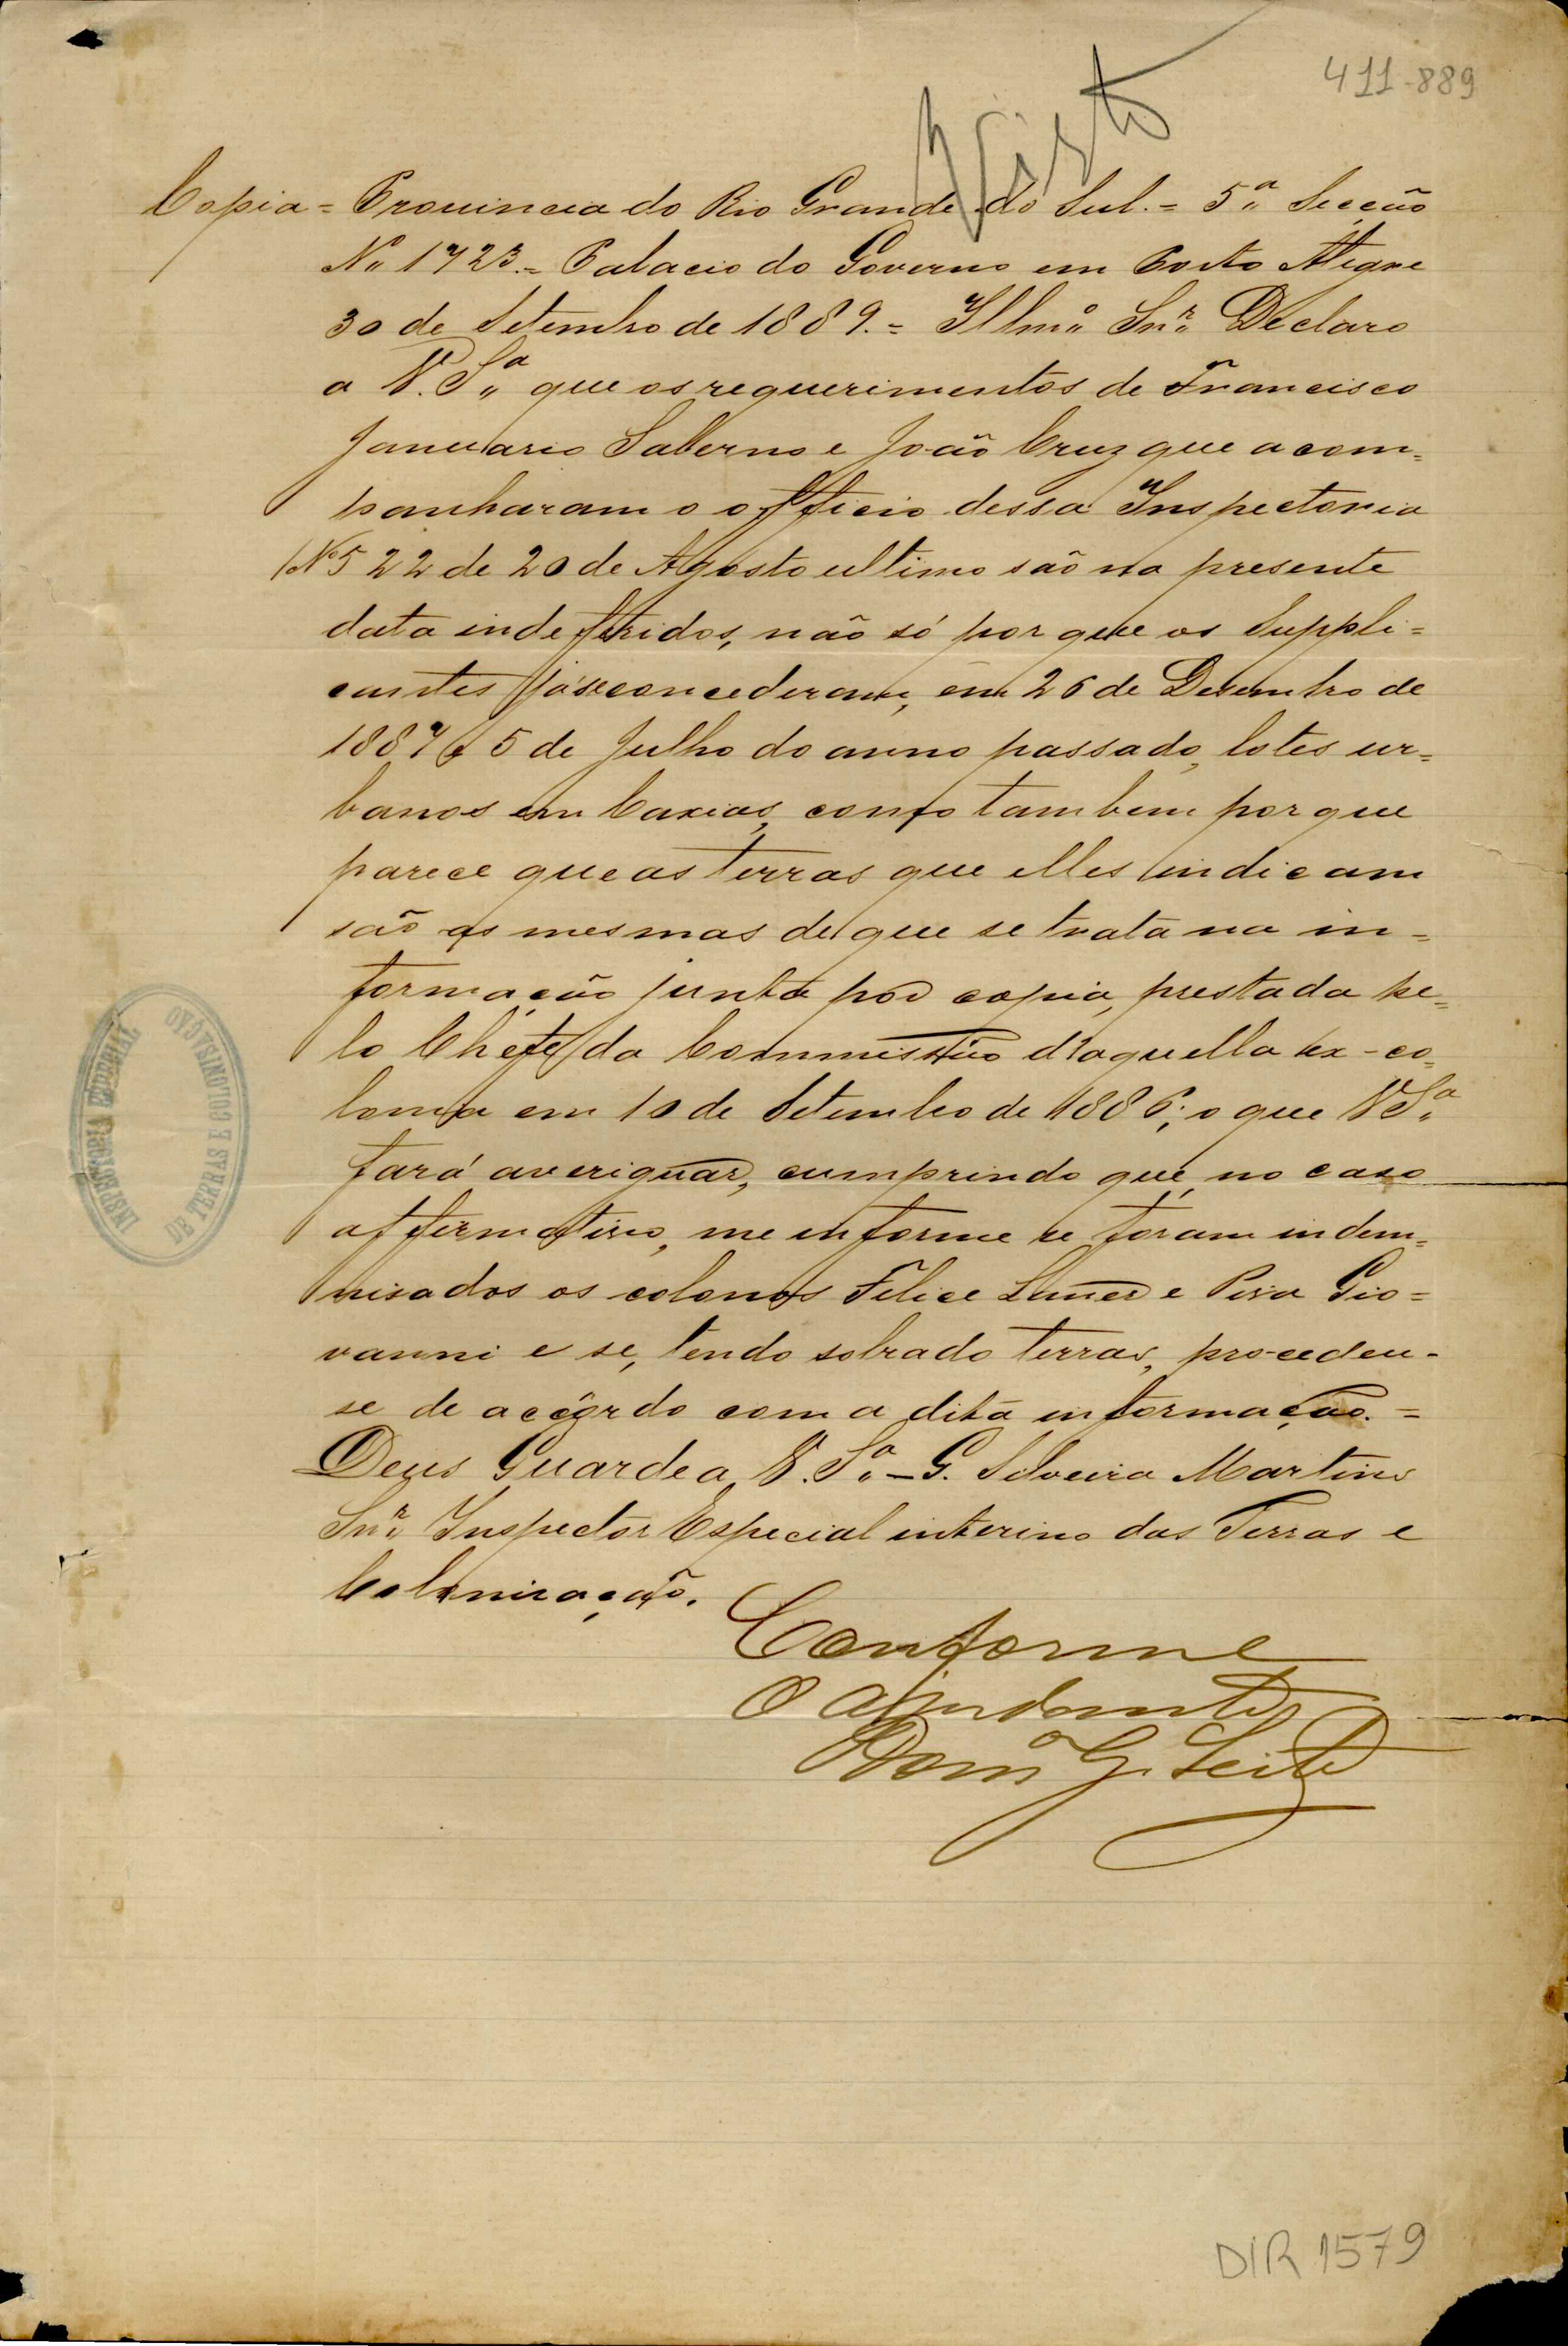 411-889
Visto
Copia = Provincia do Rio Grande do Sul. = 5ª Secção
Nº 1723. = Palacio do Governo em Porto Alegre
30 de Setembro de 1889. = Illmº Snr. Declaro
a V. Sª que os requerimentos de Francisco
Januario Salerno e João Cruz que acom=
panharam o officio dessa Inspectoria
Nº 522 de 20 de Agosto ultimo são na presente
data indeferidos, não só por que os Suppli=
cantes já se concederam, em 26 de Dezembro de
1887 e 5 de Julho do anno passado, lotes ur=
banos em Caxias, como tambem por que
parece que as terras que elles indicam
são as mesmas de que se trata na in-
formação junta por copia, prestada pe=
lo Chefe da Commissão d'aquella ex-co=
lonia em 10 de Setembro de 1886; o que V Sª
fará averiguar, cumprindo que, no caso
affirmativo, me informe se foram indem=
nisados os colonos Felice e Gio=
vanni e se, tendo sobrado terras, procedeu-
se de accôrdo com a dita informação. =
Deus Guarde a V. Sª - G. Silveira Martins
Snr. Inspector Especial interino das Terras e
Colonisação.
Conforme
O ajudante
Domº G. Leite
INSPECTORIA ESPECIAL
DE TERRAS E COLONISAÇÃO
DIR 1579